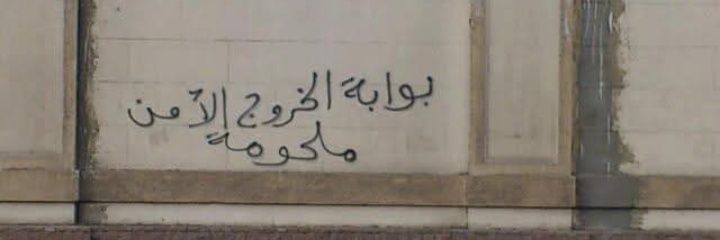 بوابة الخروج الآمن
ملحومة